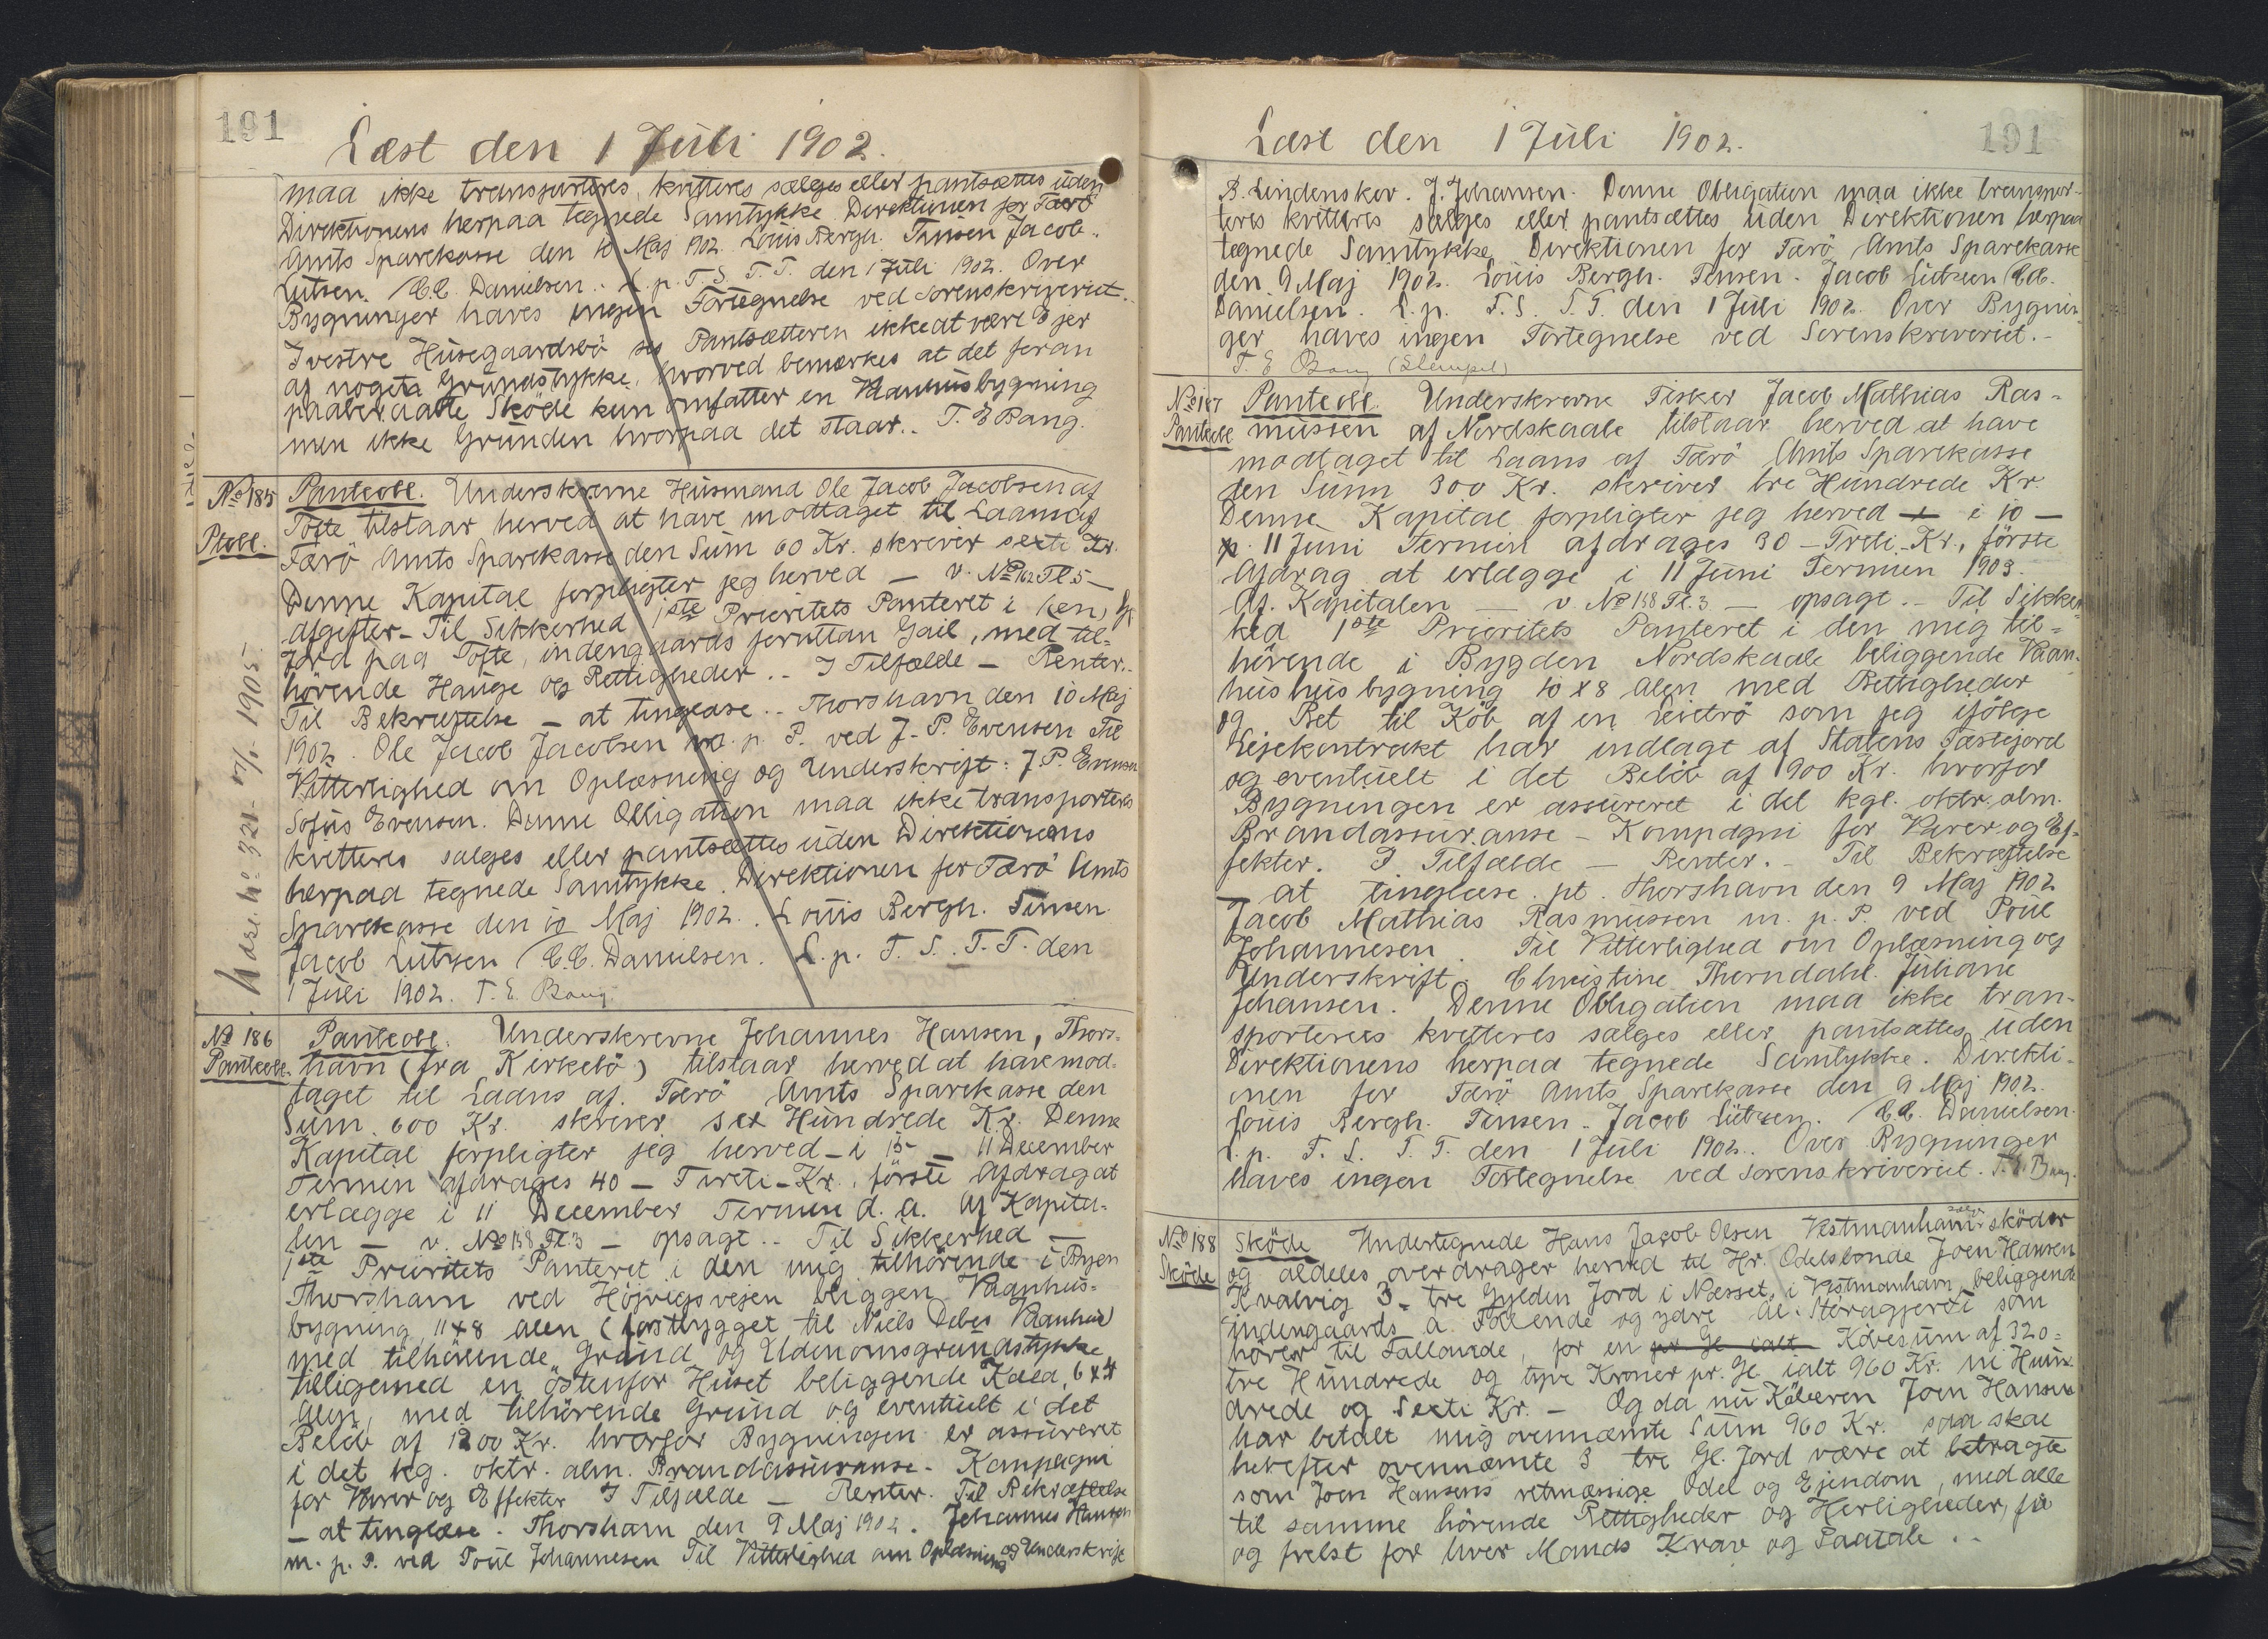 191
Læst den 1 Juli 1902.
maa ikke transporteres, kvitteres sælges eller pantsættes uden
Direktionens herpaa tegnede Samtykke. Direktionen for Færö
Amts Sparekasse den 10 Maj 1902. Louis Bergh. Finsen Jacob
Lutzen. C.C. Danielsen. L. p. F. S. T. T. den 1 Juli 1902. Over
Bygninger haves ingen Fortegnelse ved Sorenskriveriet.
I vestre Husegaardsbö ses Pantsætteren ikke at være Ejer
af noget Grundstykke, hvorved bemærkes at det foran
paaberaabte Sköde kun omfatter en Vaanhusbygning
men ikke Grunden hvorpaa det staar.. T. E Bang.
No 185
Ptobl.
Panteobl. Underskrevne Husmand Ole Jacob Jacobsen af
Tofte tilstaar herved at have modtaget til Laans af
Færö Amts Sparekasse den Sum 60 Kr. skriver sexti Kr.
Denne Kapital forpligter jeg herved — v. No 162 Fl. 5 —
afgifter - Til Sikkerhed 1ste Prioritets Panteret i 1 en, Gl
Jord paa Tofte, indengaards foruttan Gail, med til-
hörende Hauge og Rettigheder.. I Tilfælde — Renter.
Til Bekræftelse — at tinglæse.. Thorshavn den 10 Maj
1902. Ole Jacob Jacobsen m. p. P. ved J. P. Evensen Til
Vitterlighed om Oplæsning og Underskrift: J. P. Evensen
Sofus Evensen. Denne Obligation maa ikke transporteres
kvitteres sælges eller pantsættes uden Direktionens
herpaa tegnede Samtykke. Direktionen for Færö Amts
Sparekasse den 10 Maj 1902. Louis Bergh. Finsen.
Jacob Lutzen C.C. Danielsen. L. p. F. S. T. T. den
1 Juli 1902. T. E. Bang.
No 186
Panteobl.
Panteobl. Underskrevne Johannes Hansen, Thors-
havn (fra Kirkebö) tilstaar herved at have mod-
taget til Laans af Færö Amts Sparekasse den
Sum 600 Kr. skriver sex Hundrede Kr. Denne
Kapital forpligter jeg herved — i 15 — 11 December
Termin afdrages 40 — Fireti — Kr., förste Afdrag at
erlægge i 11 December Termin d. A. Af Kapita-
len — v. No 158 Fl. 3 — opsagt.. Til Sikkerhed —
1ste Prioritets Panteret i den mig tilhörende i Byen
Thorshavn ved Höjvigsvejen beliggen Vaanhus-
bygning, 11 x 8 Alen (fastbygget til Niels Debes Vaanhus)
med tilhörende Grund og Udenomsgrundstykke
tilligemed en östenfor Huset beliggende Kæld, 6 x 4
Alen, med tilhörende Grund og eventuelt i det
Belöb af 1200 Kr. hvorfor Bygningen er assureret
i det kg. oktr. alm. Brandassuranse - Kompagni
for Varer og Effekter I Tilfælde — Renter. Til Bekræftelse
— at tinglæse. Thorshavn den 9 Maj 1902. Johannes Hansen
m. p. P. ved Poul Johannesen Til Vitterlighed om Oplæsning og Underskrift
191
Læst den 1 Juli 1902.
B. Lindenskov. J. Johansen. Denne Obligation maa ikke transpor-
teres kvitteres sælges eller pantsættes uden Direktionen herpaa
tegnede Samtykke Direktionen for Færö Amts Sparekasse
den 9 Maj 1902. Louis Bergh. Finsen. Jacob Lutzen C.C.
Danielsen. L. p. F. S. T. T. den 1 Juli 1902. Over Bygnin-
ger haves ingen Fortegnelse ved Sorenskriveriet.-
T. E Bang (Stempel)
No 187
Panteobl
Panteobl. Underskrevne Fisker Jacob Mathias Ras-
mussen af Nordskaale tilstaar herved at have
modtaget til Laans af Færö Amts Sparekasse
den Sum 300 Kr. skriver tre Hundrede Kr.
Denne Kapital forpligter jeg herved — i 10 —
p. 11 Juni Termin afdrages 30 — Treti — Kr., förste
Afdrag at erlægge i 11 Juni Termin 1903.
Af Kapitalen — v. No 158 Fl. 3 — opsagt.. Til Sikker-
hed 1ste Prioritets Panteret i den mig til-
hörende i Bygden Nordskaale beliggende Vaan-
hus hus bygning 10 x 8 Alen med Rettigheder
og Ret til Köb af en Leietrö som jeg ifölge
Lejekontrakt har indlagt af Statens Fæstejord
og eventuelt i det Belöb af 900 Kr. hvorfor
Bygningen er assureret i det kgl. oktr. alm.
Brandassuranse - Kompagni for Varer og Ef-
fekter. I Tilfælde — Renter. - Til Bekræftelse
— at tinglæse. pt. Thorshavn den 9 Maj 1902
Jacob Mathias Rasmussen m. p. P. ved Poul
Johannesen. Til Vitterlighed om Oplæsning og
Underskrift. Christine Thorndahl. Juliane
Johansen. Denne Obligation maa ikke tran-
sporteres kvitteres sælges eller pantsættes uden
Direktionens herpaa tegnede Samtykke. Direkti-
onen for Færö Amts Sparekasse den 9 Maj 1902.
Louis Bergh. Finsen. Jacob Lutzen. C.C. Danielsen.
L. p. F. S. T. T. den 1 Juli 1902. Over Bygninger
haves ingen Fortegnelse ved Sorenskriveriet. T. E. Bang.
No 188
Sköde
Sköde Undertegnede Hans Jacob Olsen Vestmanhavn sælger sköder
og aldeles overdrager herved til Hr. Odelsbonde Joen Hansen
Kvalvig 3 - tre Gylden Jord i Nesset, i Vestmanhavn, beliggende
indengaards a Fälende og ydre al. Storagjerdi som
hörer til Fallande, for en pr Gl ialt Köbesum af 320=
tre Hundrede og tyve Kroner pr. Gl. ialt 960 Kr. ni Hun-
drede og Sexti Kr. — Og da nu Köberen Joen Hansen
har betalt mig ovennævnte Sum 960 Kr. saa skal
herefter ovennævnte 3 tre Gl. Jord være at betragte
som Joen Hansens retmæssige Odel og Ejendom, med alle
til samme hörende Rettigheder og Herligheder, fri
og frelst for hver Mands Krav og Paatale ..